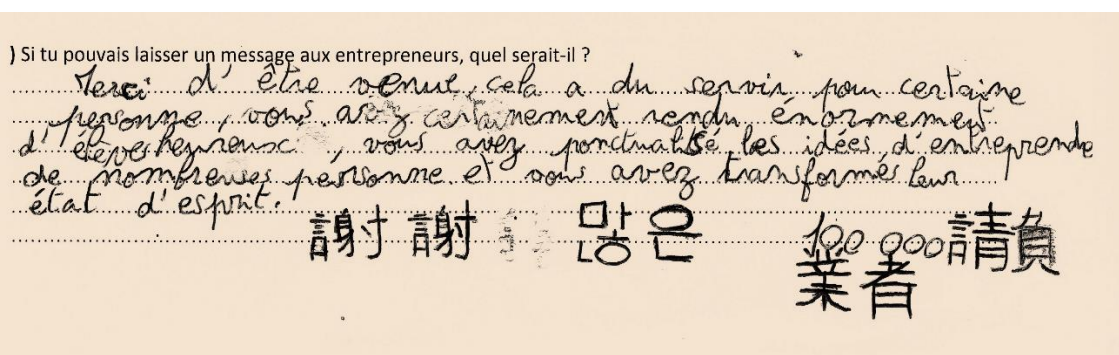 ) Si tu pouvais laisser un message aux entrepreneurs, quel serait-il ?
Merci d'être venue, cela a du servir pour certaine
personne, vous avez certainement rendu énormement
d'élève heureux, vous avez ponctualisé les idées d'entreprendre
de nombreuses personne et vous avez transformés leur
état d'esprit.
謝謝 많은 100 000 請負
業者